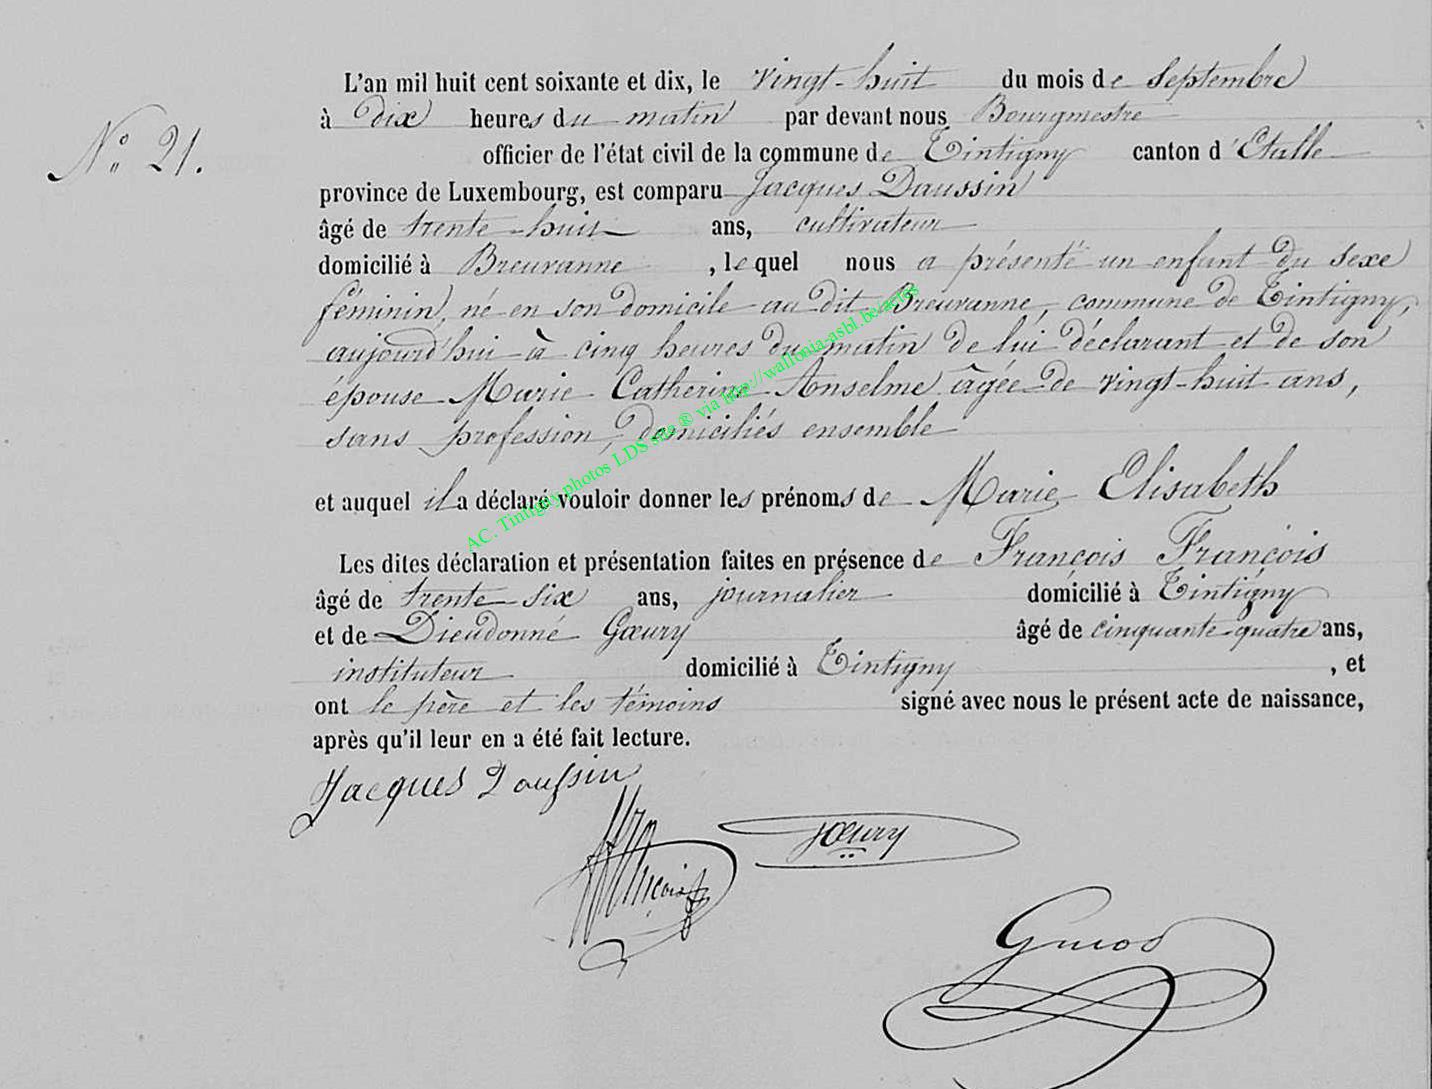 L'an mil huit cent soixante et dix, le vingt-huit du mois de Septembre
à Dix heures du matin par devant nous Bourgmestre
N° 21.
officier de l'état civil de la commune de Tintigny canton d'Etalle
province de Luxembourg, est comparu Jacques Daussin
âgé de trente-huit ans, cultivateur
domicilié à Breuvanne, lequel nous a présenté un enfant du sexe
féminin, né en son domicile au dit Breuvanne, commune de Tintigny,
aujourd'hui à cinq heures du matin de lui déclarant et de son
épouse Marie Catherine Anselme âgée de vingt-huit ans,
sans profession, domiciliés ensemble
et auquel il a déclaré vouloir donner les prénoms de Marie Elisabeth
Les dites déclaration et présentation faites en présence de François François
âgé de trente-six ans, journalier domicilié à Tintigny
et de Dieudonné Gœury âgé de cinquante-quatre ans,
instituteur domicilié à Tintigny, et
ont le père et les témoins signé avec nous le présent acte de naissance,
après qu'il leur en a été fait lecture.
Jacques Daussin
Gœury
François
AC. Tintigny photos LDS site ® via http://wallonia-asbl.be/actes